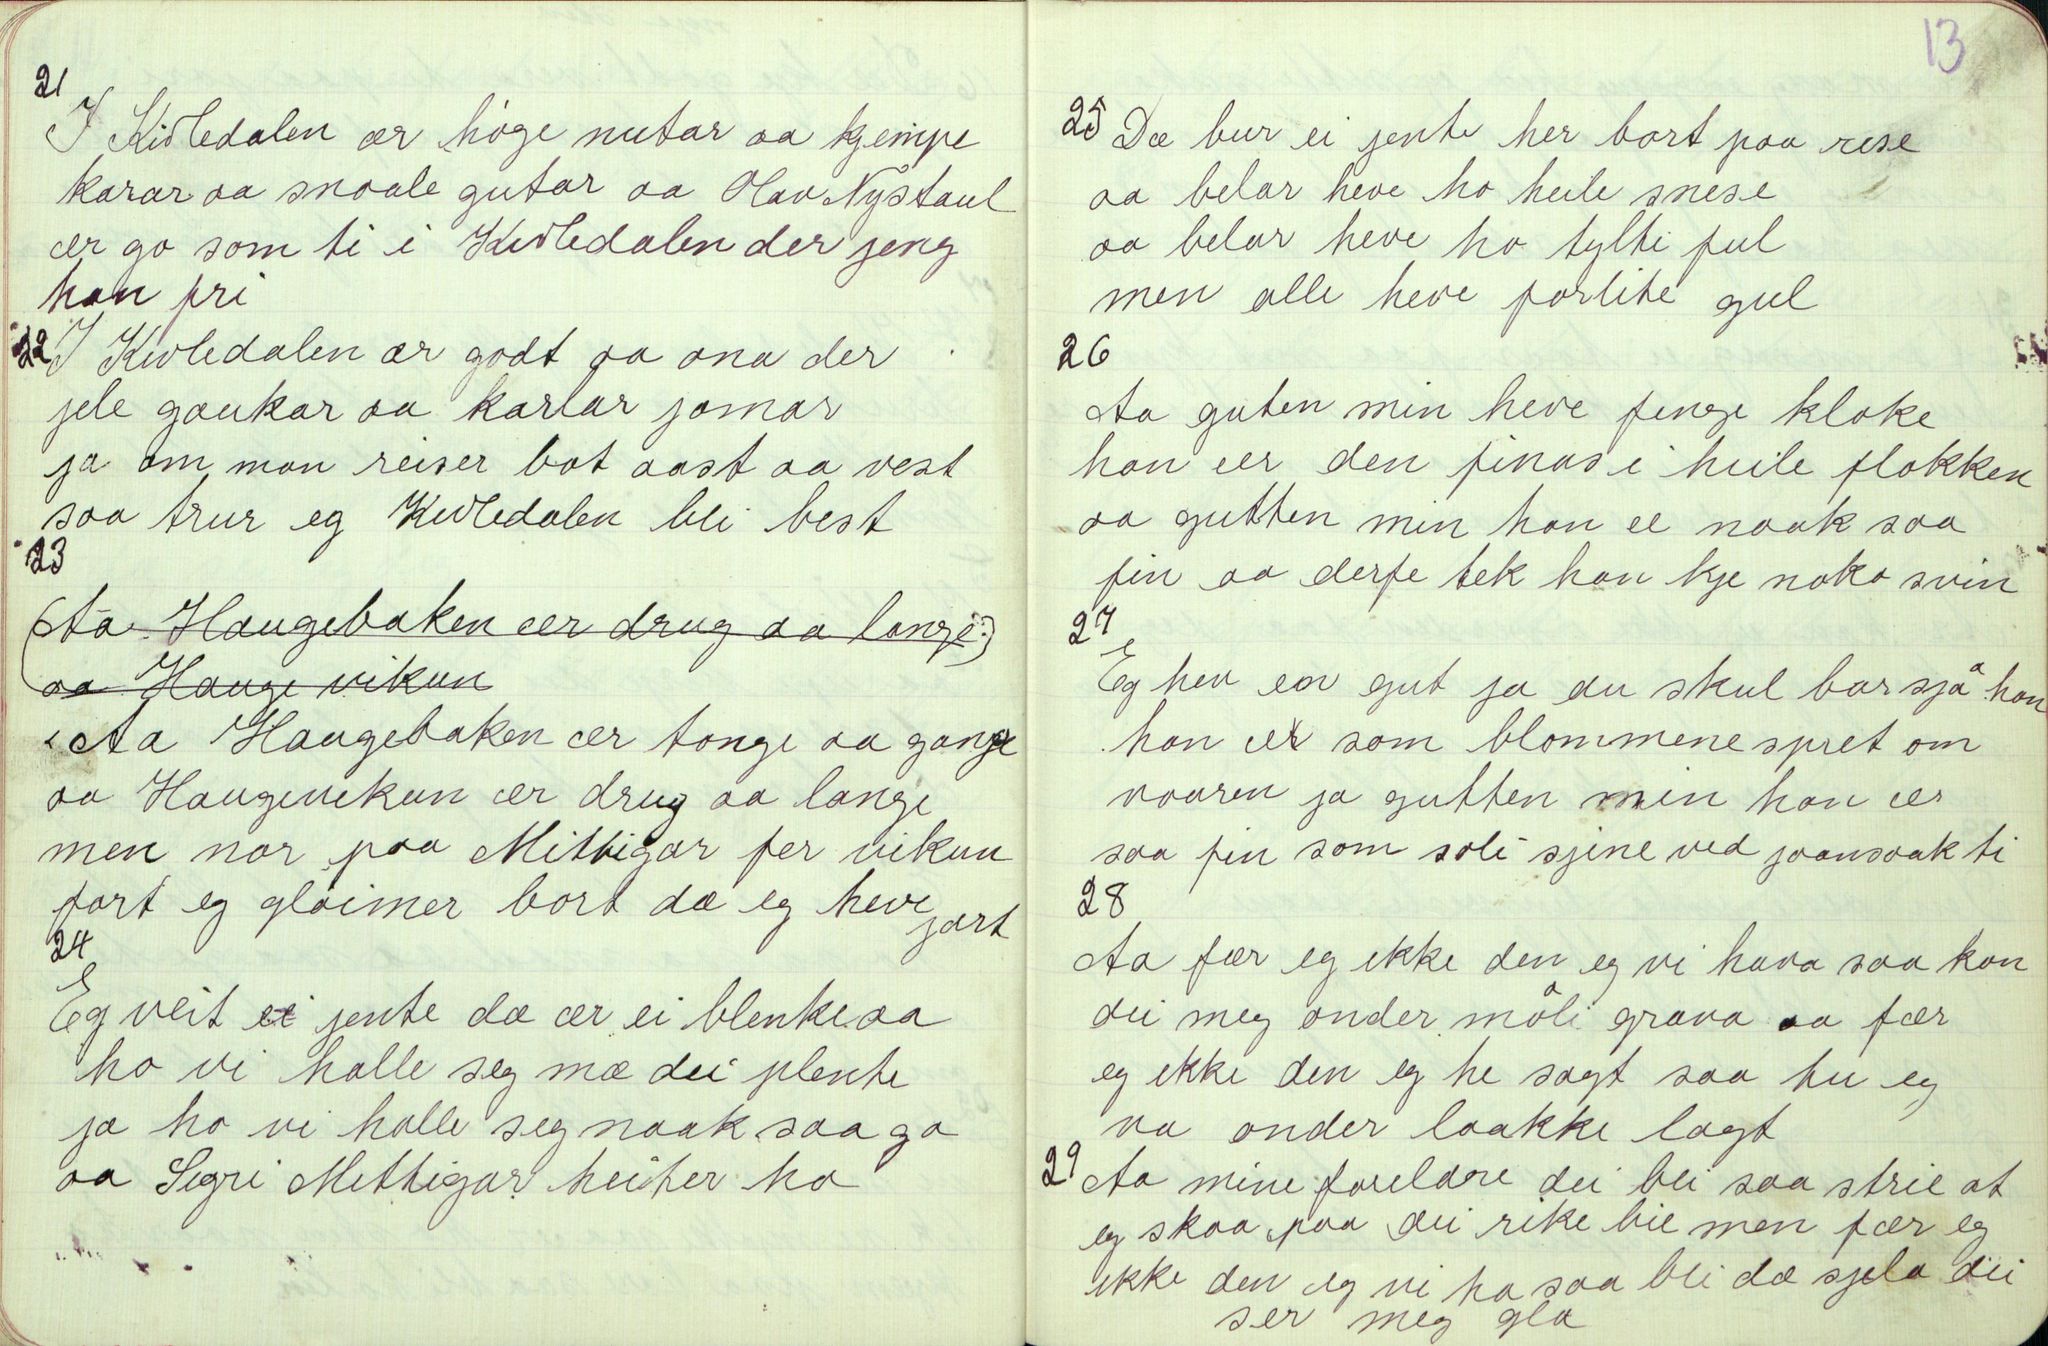 21
I Kivledalen ær höge nutar aa kjempe
karar aa snaale gutar aa Olav Nystaul
ær go som ti i Kivledalen der jeng
han fri
22 I Kivledalen ær godt aa ana der
jele gaukar aa karlar jamar
ja om man reiser bot aast aa vest
saa trur eg Kivledalen bli best
23
(Aa Haugebaken ær drug aa lange:)
aa Hauge vikun
Aa Haugebaken ær tonge aa gange
aa Haugevekun ær drug aa lange
men nar paa Mittigar fer vikun
fort eg glöimer bort dæ eg heve
jart
24
Eg veit ei jente dæ ær ei blenke aa
ho vi halle seg mæ dei plente
ja ho vi halle seg naak saa go
aa Segri Mettigar heiter ho
13
25 Dæ bur ei jente her bort paa rese
aa belar heve ho heile snese
aa belar heve ho tylti ful
men alle heve forlite gul
26
Aa guten min heve fenge kloke
han ær den finas i heile flokken
aa gutten min han æ naak saa
fin aa derfe tek han kje noko svin
27
Eg hev ein gut ja du skul bar sjå han
han ær som blommene spret om
vaaren ja gutten min han ær
saa fin som soli sjine ved joansaak ti
28
Aa fær eg ikke den eg vi hava saa kan
dei meg onder möli grava aa fær
eg ikke den eg he sagt saa hu eg
va onder laakke lagt
29 Aa mine foreldre dei bli saa strie at
eg skaa paa dei rike bie men fær eg
ikke den eg vi ha saa bli dæ sjela dei
ser meg gla